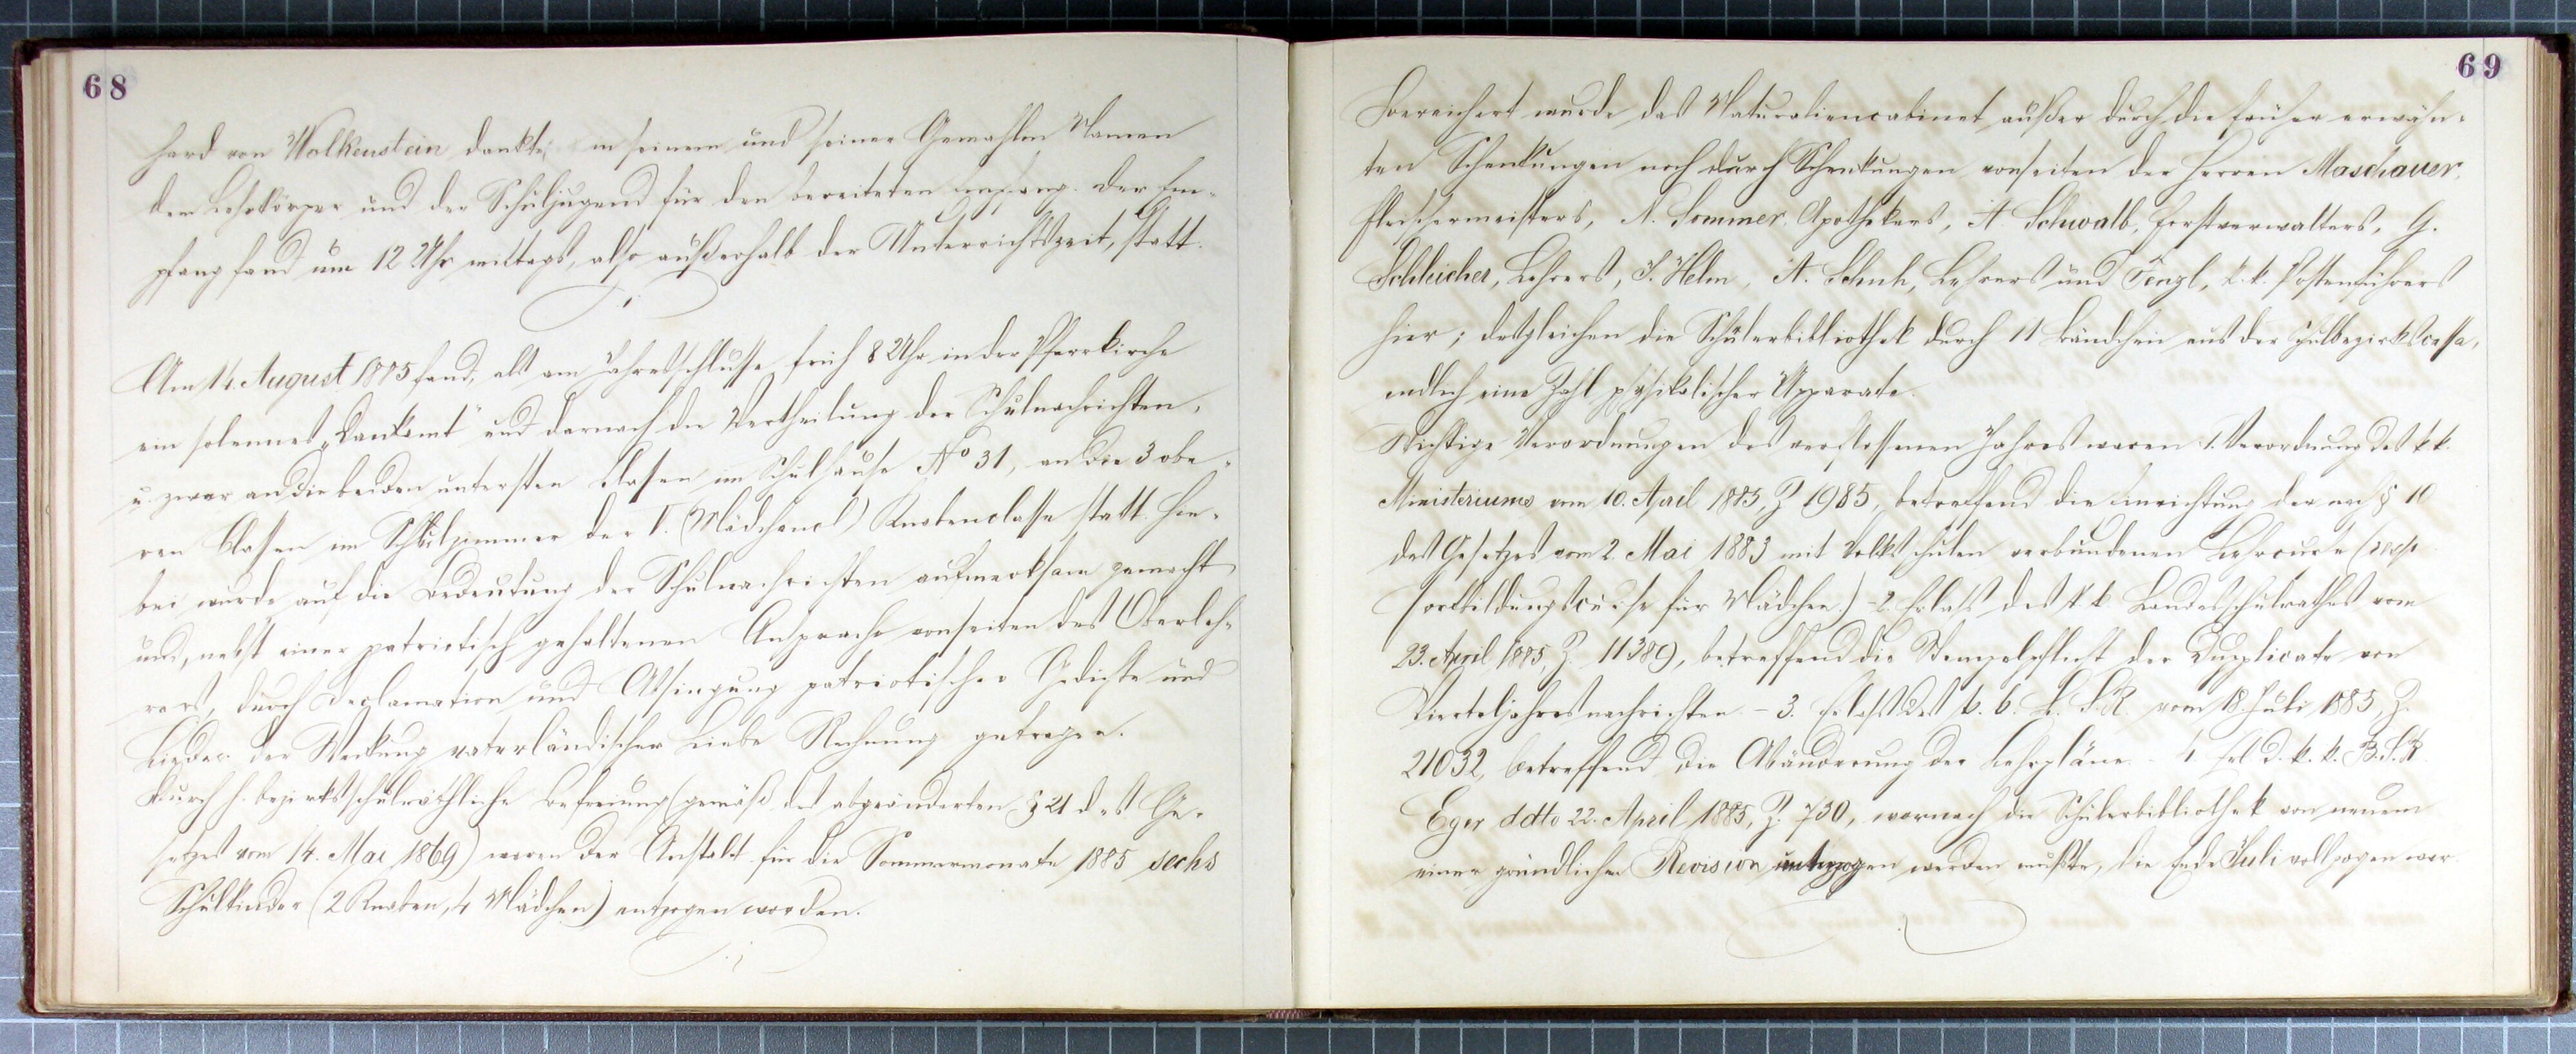 68
hard von Wolkenstein dankte in seinem und seiner Gemahlin Namen
dem Lehrkörper und der Schuljugend für den bereiteten Empfang. Der Em-
pfang fand um 12 Uhr mittags, also außerhalb der Unterrichtszeit, statt.
Am 14. August 1885 fand, als am Jahresschlusse, früh 8 Uhr in der Pfarrkirche
ein solennes „Dankamt" und darnach die Vertheilung der Schulnachrichten,
u. zwar an die beiden untersten Classen im Schulhause No 31, an die 3 obe-
ren Classen im Schulzimmer der V. (Mädchencl) Knabenclasse statt. Hie-
bei wurde auf die Bedeutung der Schulnachrichten aufmerksam gemacht
und, nebst einer patriotisch gehaltenen Ansprache vonseiten des Oberleh-
rers, durch Declamation und Absingung patriotischer Gedichte und
Lieder der Weckung vaterländischer Liebe Rechnung getragen.
Durch h. bezirksschulräthliche Befreiung (gemäß des abgeänderten § 21 des Ge-
setzes vom 14. Mai 1869) waren der Anstalt für die Sommermonate 1885 sechs
Schulkinder (2 Knaben, 4 Mädchen) entzogen worden.
69
Bereichert wurde das Naturaliencabinet außer durch die früher erwähn-
ten Schenkungen noch durch Schenkungen vonseiten der Herren Maschauer,
Fleischermeisters, A. Sommer, Apothekers, A. Schwalb, Forstverwalters, G.
Schleicher, Lehrers, J. Helm, A. Schuh, Lehrers und Fenzl, k. k. Postenführers
hier; desgleichen die Schülerbibliothek durch 11 Bändchen aus der Schulbezirkscassa,
endlich eine Zahl physikalischer Apparate.
Wichtige Verordnungen des verflossenen Jahres waren: 1. Verordnung des k k.
Ministeriums vom 10. April 1885, Z 1985, betreffend die Einrichtung der nach § 10
des Gesetzes vom 2 Mai 1883 mit Volksschulen verbundenen Lehrcurse (resp
Fortbildungscurse für Mädchen.) - 2. Erlaß des k k Landesschulrathes vom
23. April 1885, Z. 11389, betreffend die Stempelpflicht der Duplicate von
Vierteljahresnachrichten. - 3. Erlaß des k. k. L. S. R. vom 18. Juli 1885, Z.
21032, betreffend die Abänderung der Lehrpläne. - 4. Erl. d. k. k. B. S. R.
Eger ddto 22. April 1885, Z. 730, wornach die Schülerbibliothek von neuem
einer gründlichen Revision unterzogen werden mußte, die Ende Juli vollzogen war.